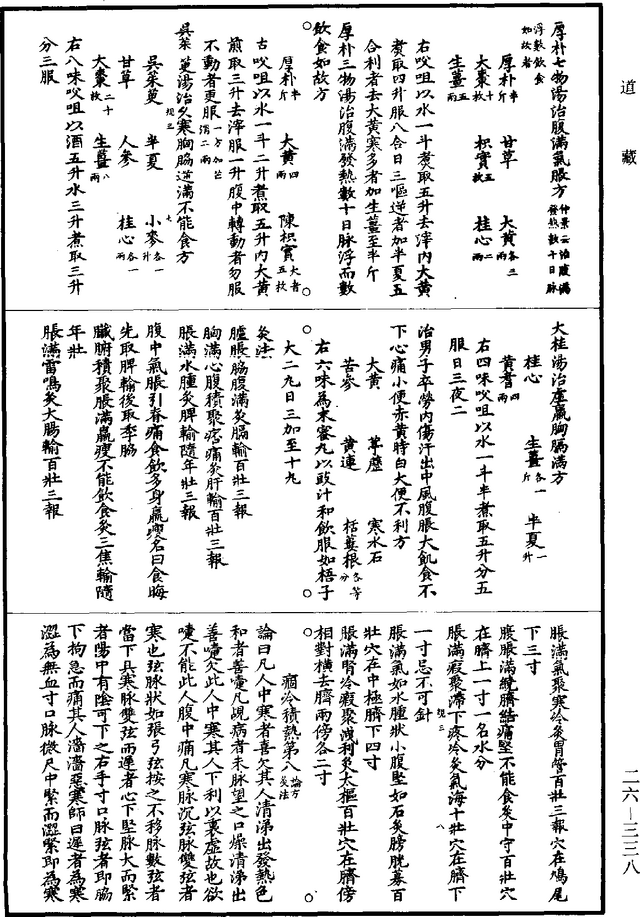 道藏
厚朴七物湯治腹滿氣脹方 仲景云治腹滿發熱數十日脉
浮數飲食如故者
厚朴半斤 甘草 大黃各三兩
大棗十枚 枳實五枚 桂心二兩
生薑五兩
右㕮咀以水一斗煑取五升去滓内大黃
煑取四升服八合日三嘔逆者加半夏五
合利者去大黃寒多者加生薑至半斤
厚朴三物湯治腹滿發熱數十日脉浮而數
飲食如故方
厚朴半斤 大黃四兩 陳枳實大者五枚
右㕮咀以水一斗二升煮取五升内大黃
煎取三升去滓服一升腹中轉動者勿服
不動者更服 一方加芒消二兩
吳茱萸湯治久寒胸脇逆滿不能食方
吳茱萸 半夏 小麥各一升
甘草 人參 桂心各一兩
大棗二十枚 生薑八兩
右八味㕮咀以酒五升水三升煮取三升
分三服
大桂湯治虛羸胸膈滿方
桂心 生薑各一斤 半夏一升
黃耆四兩
右四味㕮咀以水一斗半煮取五升分五
服日三夜二
治男子卒勞内傷汗出中風腹脹大飢食不
下心痛小便赤黃時白大便不利方
大黃 葶藶 寒水石
苦參 黃連 栝蔞根各等分
右六味為末蜜丸以豉汁和飲服如梧子
大二丸日三加至十丸
灸法
臚脹脇腹滿灸膈輸百壯三報
胸滿心腹積聚痞痛灸肝輸百壯三報
脹滿水腫灸脾輸隨年壯三報
腹中氣脹引脊痛食飲多身羸瘦名曰食晦
先取脾輸後取季脇
臟腑積聚脹滿羸瘦不能飲食灸三焦輸隨
年壯
脹滿雷鳴灸大腸輸百壯三報
脹滿氣聚寒冷灸胃管百壯三報穴在鳩尾
下三寸
腹脹滿繞臍結痛堅不能食灸中守百壯穴
在臍上一寸一名水分
脹滿瘕聚滯下疼冷灸氣海十壯穴在臍下
一寸忌不可針
脹滿氣如水腫狀小腹堅如石灸膀胱募百
壯穴在中極臍下四寸
脹滿腎冷瘕聚洩利灸天樞百壯穴在臍傍
相對橫去臍兩傍各二寸
痼冷積熱第八 論方灸法
論曰凡人中寒者喜欠其人清涕出發熱色
和者善嚏凡覘病者未脉望之口燥清涕出
善嚏欠此人中寒其人下利以裏虛故也欲
嚏不能此人腹中痛凡寒脉沉弦脉雙弦者
寒也弦脉狀如張弓弦按之不移脉數弦者
當下其寒脉雙弦而遲者心下堅脉大而緊
者陽中有陰可下之右手寸口脉弦者即脇
下拘急而痛其人濇濇惡寒師曰遲者為寒
濇為無血寸口脉微尺中緊而濇緊即為寒
二六—三三八